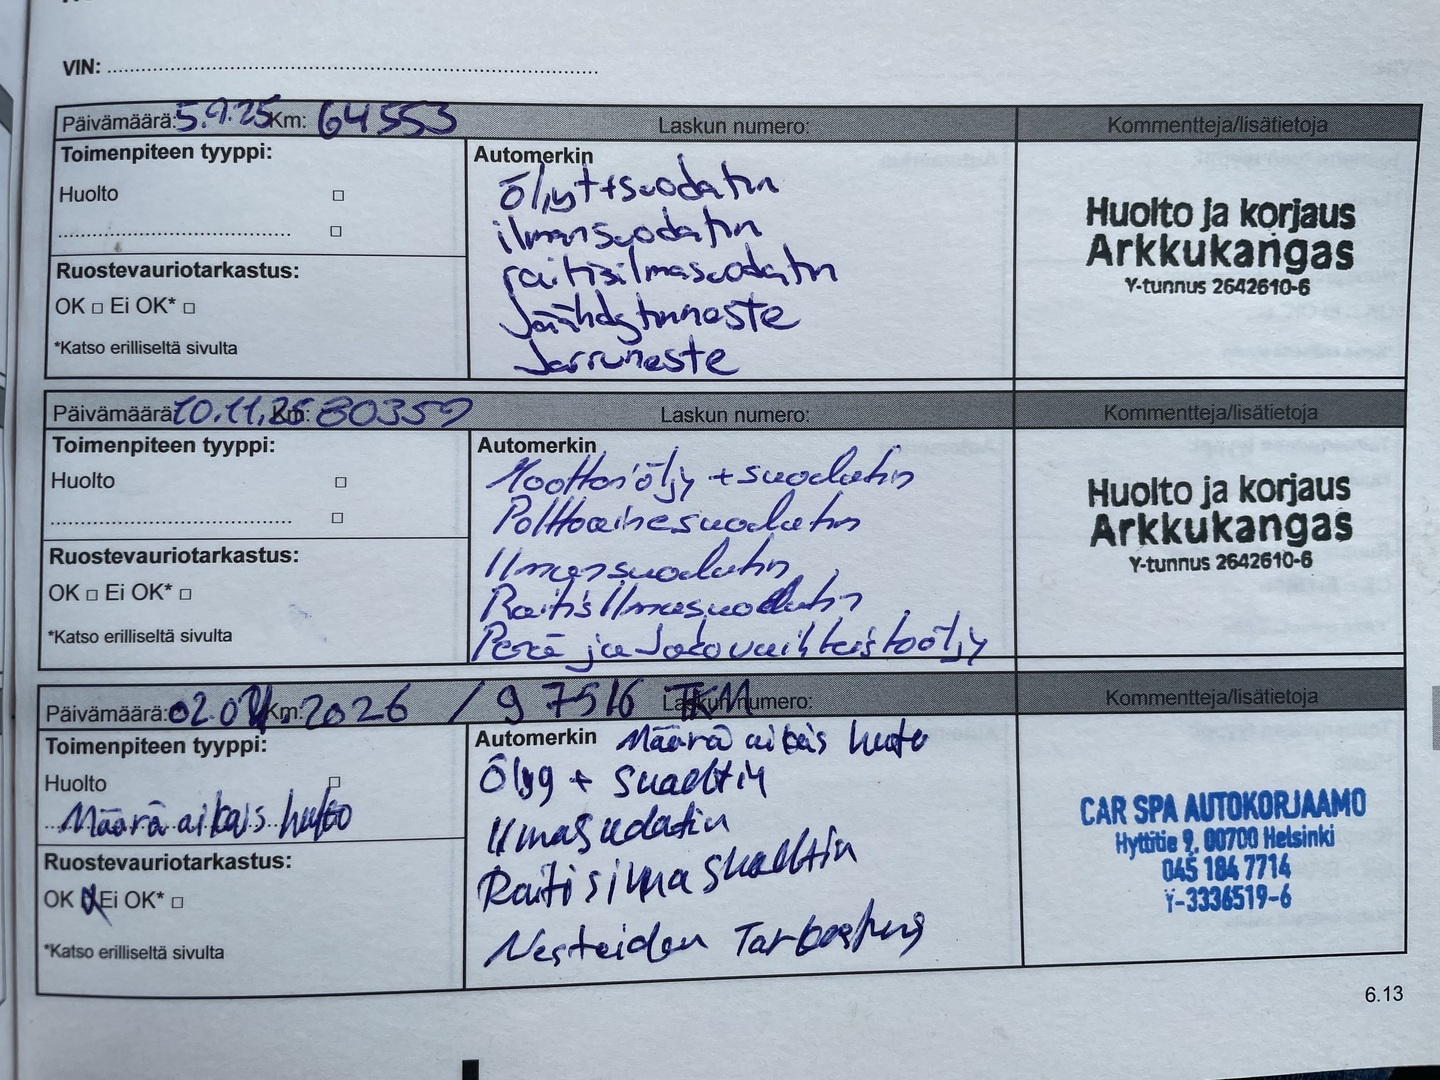 VIN:
Päivämäärä: 5.9.25 Km: 64553 Laskun numero: Kommentteja/lisätietoja
Toimenpiteen tyyppi:
Huolto
Ruostevauriotarkastus:
OK □ Ei OK* □
*Katso erilliseltä sivulta
Automerkin
Öljyt+suodatin
ilmansuodatin
raitisilmasuodatin
Jäähdytinneste
Jarruneste
Huolto ja korjaus
Arkkukangas
Y-tunnus 2642610-6
Päivämäärä 10.11.25 Km: 80359 Laskun numero: Kommentteja/lisätietoja
Toimenpiteen tyyppi:
Huolto
Ruostevauriotarkastus:
OK □ Ei OK* □
*Katso erilliseltä sivulta
Automerkin
Moottoriöljy +suodatin
Polttoainesuodatin
Ilmansuodatin
Raitisilmasuodatin
Perä ja Jakovaihteistoöljy
Huolto ja korjaus
Arkkukangas
Y-tunnus 2642610-6
Päivämäärä: Km: 2026 / 97516 TKM Laskun numero: Kommentteja/lisätietoja
Toimenpiteen tyyppi:
Huolto
Määräaikais huolto
Ruostevauriotarkastus:
OK Ei OK* □
*Katso erilliseltä sivulta
Automerkin Määrä aikais
+
Ilmasudatin
Nesteiden
CAR SPA AUTOKORJAAMO
Hyttitie 9, 00700 Helsinki
045 184 7714
Y-3336519-6
6.13